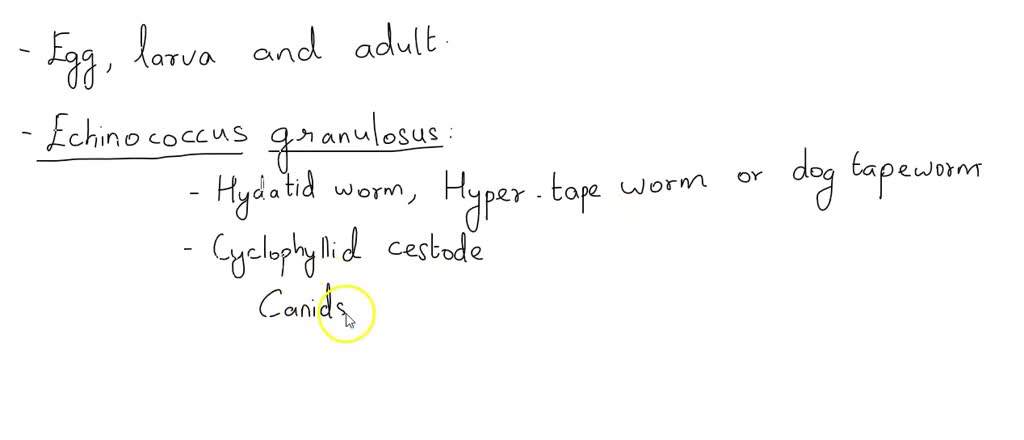 - Egg, larva and adult.
- Echinococcus granulosus:
- Hydatid worm, Hyper-tape worm or dog tapeworm
- Cyclophyllid cestode
Canids